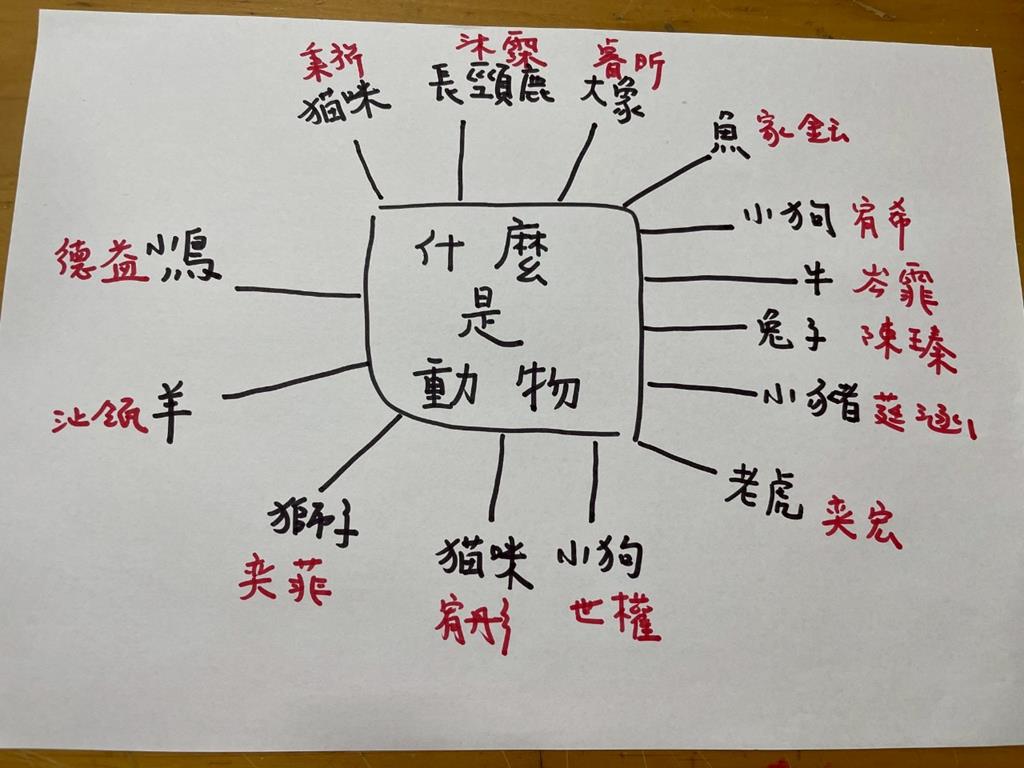 猫咪
沐霖
長頸鹿
睿昕
大象
魚 家鈺
小狗 宥希
牛 岑霏
兔子 陳瑧
小豬 莛涵
老虎 奕宏
小狗
世權
猫咪
宥彤
獅子
奕菲
羊
德益 小鳥
什麼
是
動物